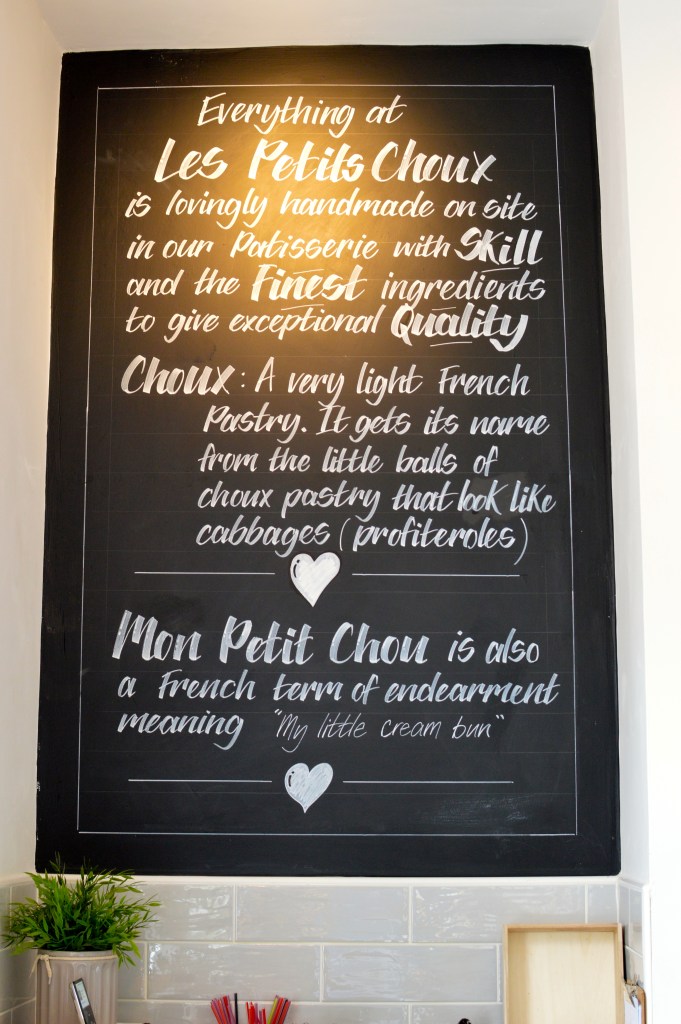 Everything at
Les Petits Choux
is lovingly handmade on site
in our Patisserie with Skill
and the Finest ingredients
to give exceptional Quality
Choux: A very light French
Pastry. It gets its name
from the little balls of
choux pastry that look like
cabbages (profiteroles)
Mon Petit Chou is also
a French term of endearment
meaning "My little cream bun"